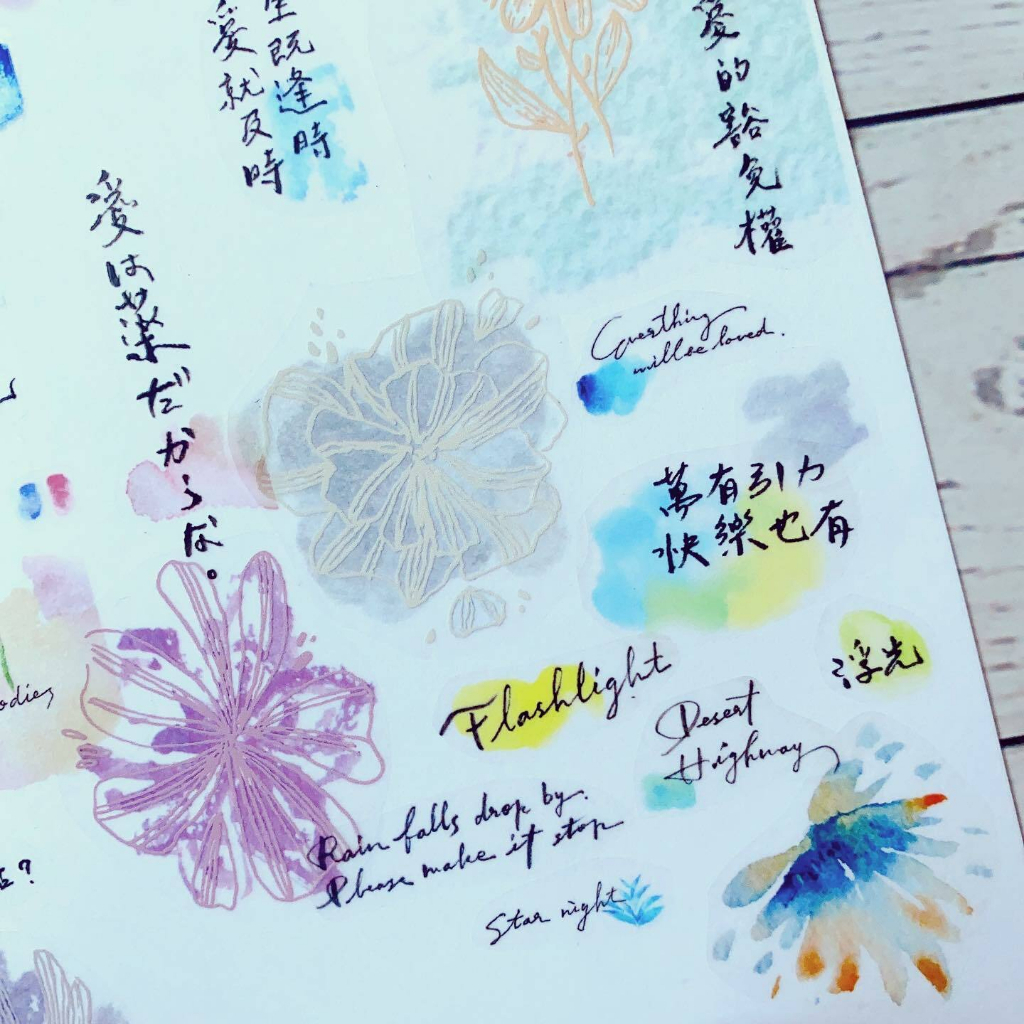 生既逢時
愛就及時
愛的豁免權
愛は薬だからな。
Everthing
will be loved.
萬有引力
快樂也有
浮光
Flashlight
Desert
Highway
Rain falls drop by.
Please make it stop
Star night